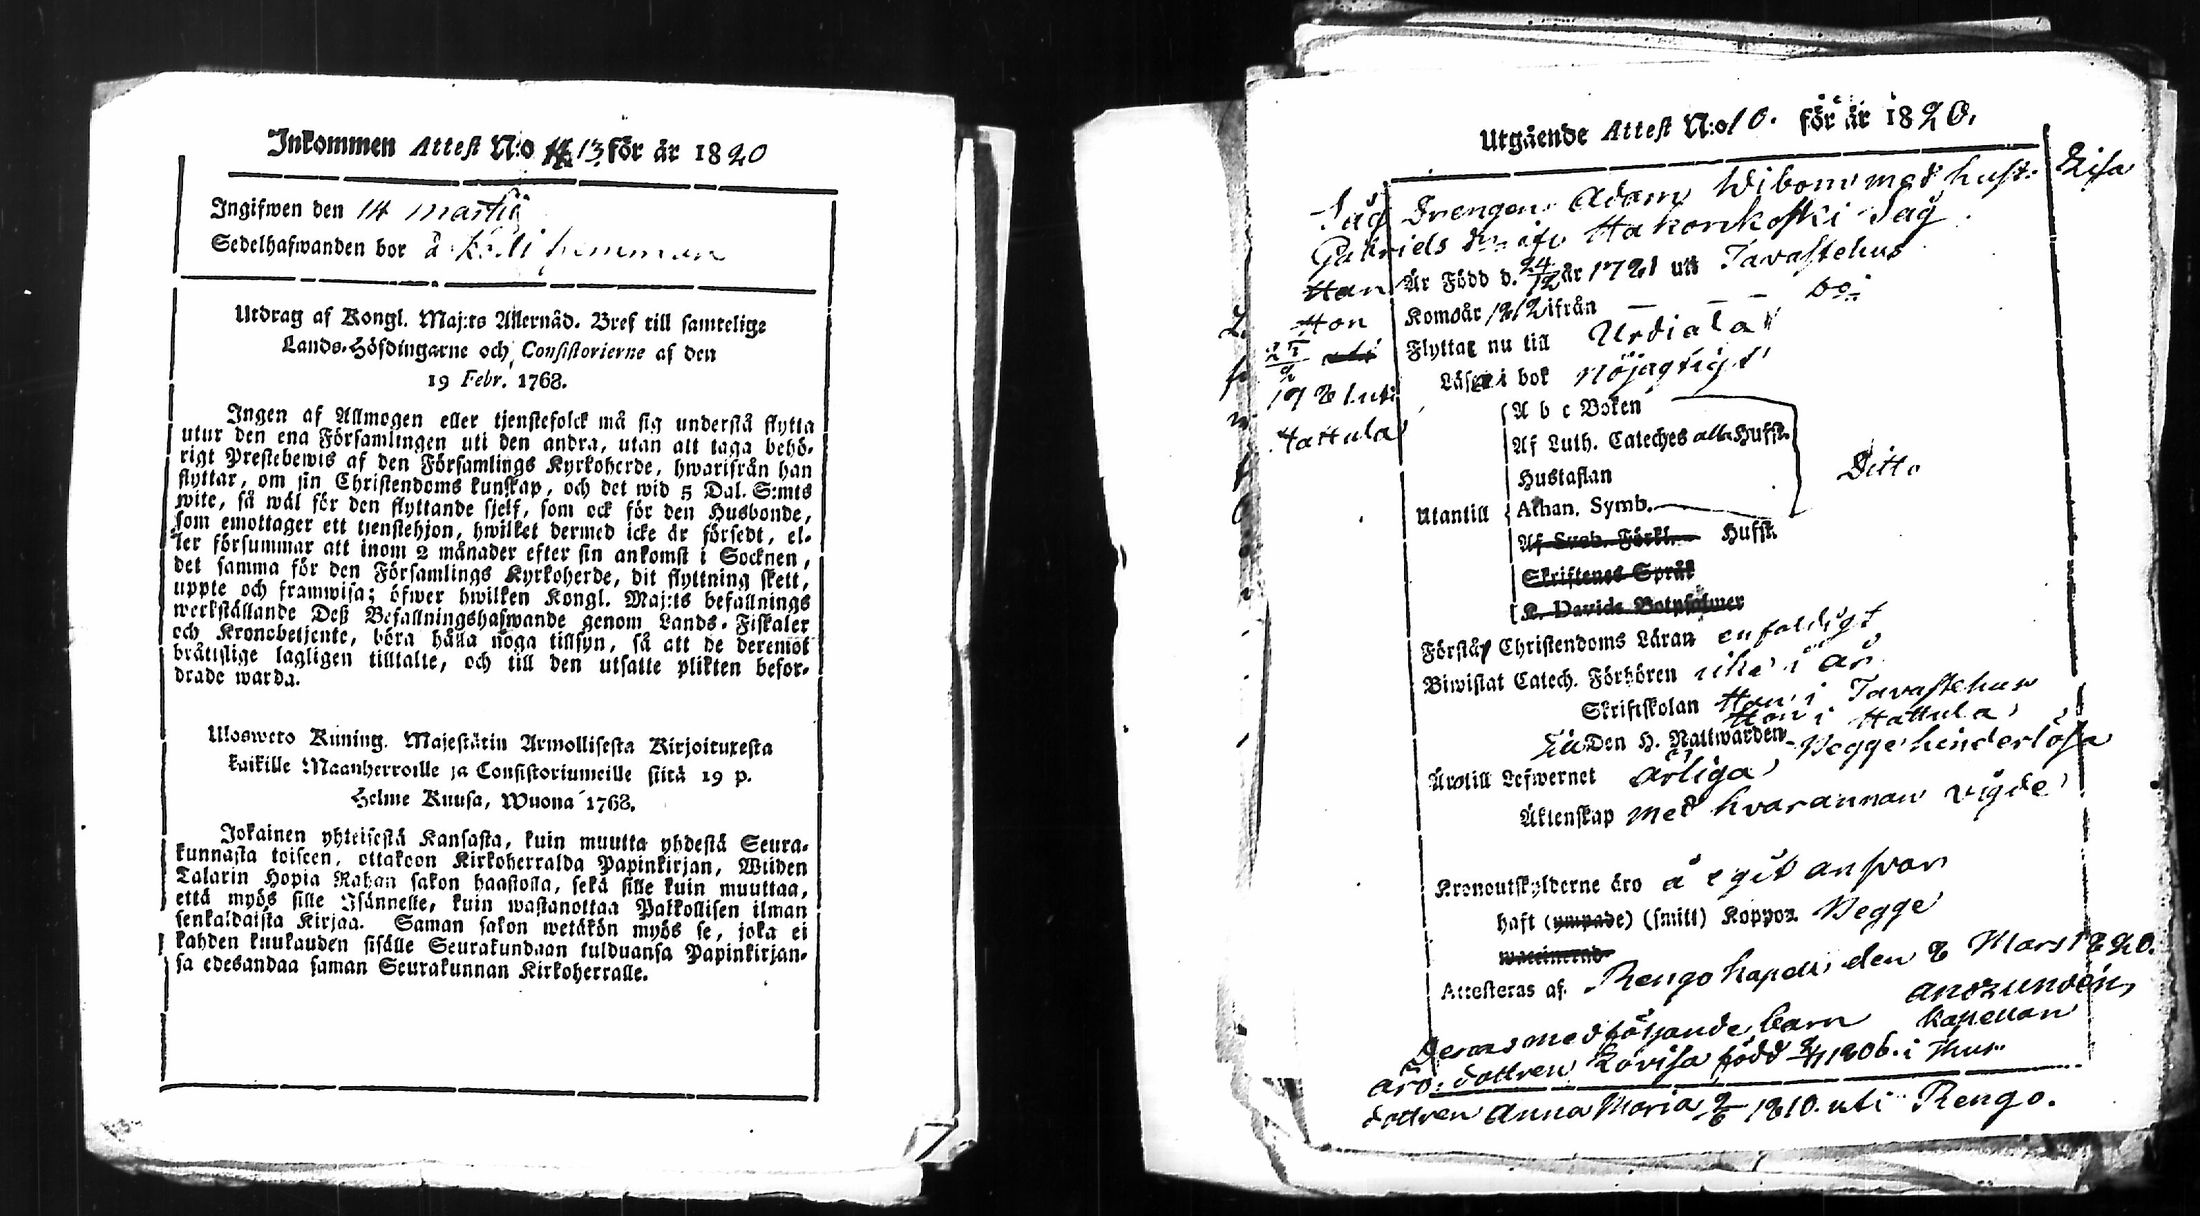 Inkommen Attest N:o 13 för år 1820
Ingifwen den 14 martii
Sedelhafwanden bor å hemman
Utdrag af Kongl. Maj:ts Allernåd. Bref till samtelige
Lands-Höfdingarne och Consistorierne af den
19 Febr. 1768.
Ingen af Allmogen eller tjenstefolck må sig understå flytta
utur den ena Församlingen uti den andra, utan att taga behö-
rigt Prestebewis af den Församlings Kyrkoherde, hwarifrån han
flyttar, om sin Christendoms kunskap, och det wid 5 Dal. S:mts
wite, så wäl för den flyttande sjelf, som ock för den Husbonde,
som emottager ett tjenstehjon, hwilket dermed icke är försedt, el-
ler försummar att inom 2 månader efter sin ankomst i Socknen,
det samma för den Församlings Kyrkoherde, dit flyttning skett,
uppte och framwisa; öfwer hwilken Kongl. Maj:ts befallnings
werkställande Deß Befallningshafwande genom Lands-Fiskaler
och Kronobetjente, böra hålla noga tillsyn, så att de deremot
bråttslige lagligen tilltalte, och till den utsatte plikten befor-
drade warda.
Ulosweto Kuning. Majestätin Armollisesta Kirjoituxesta
kaikille Maanherroille ja Consistoriumeille siitä 19 p.
Helme Kuusa, Wuona 1768.
Jokainen yhteisestä Kansasta, kuin muutta yhdestä Seura-
kunnasta toiseen, ottakoon Kirkoherralda Papinkirjan, Wiiden
Talarin Hopia Rahan sakon haastolla, sekä sille kuin muuttaa,
että myös sille Isännelle, kuin wastanottaa Palkollisen ilman
senkaldaista Kirjaa. Saman sakon wetäkön myös se, joka ei
kahden kuukauden sisälle Seurakundaan tulduansa Papinkirjan-
sa edesandaa saman Seurakunnan Kirkoherralle.
Utgående Attest N:o 10. för år 1820.
Såg Drengen Adam Wibom med hust. Lisa
Gabriels dr ifr Hakonkoski Såg
Han Är Född d. 24/12 år 1781 uti Tavastehus
Hon
Kom år 1812 ifrån — — — boi
Flyttar nu till Urdiala
1781 uti
Hattula
Läsa i bok nöjagtigt
Utantill
A b c Boken
Af Luth. Cateches alla Huffst.
Hustaflan
Athan. Symb.
Ditto
Af Symb. Förkl. Huffst.
Skriftenes Språk
K. Davids Botpsalmer
Förstår Christendoms Läran enfaldigt
Biwistat Catech. Förhören icke i år
Skriftskolan Han i Tavastehus
Hon i Hattula
Den H. Nattwarden
Äro till Lefwernet ärliga, Begge hinderlösa
Äktenskap med hvarannan vigde
Kronoutskylderne äro å egit answar
haft (ympade) (smitt) Koppor Begge
waccinerad
Attesteras af Rengo kapell den 8 Mars 1820.
Kapellan
Deras medföljande barn
äro: dottren Lovisa född 1806 i
dottren Anna Maria 1810. uti Rengo.